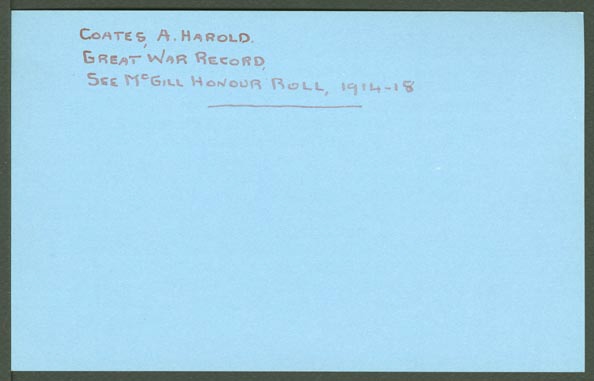 COATES, A. HAROLD.
GREAT WAR RECORD,
SEE McGILL HONOUR ROLL, 1914-18